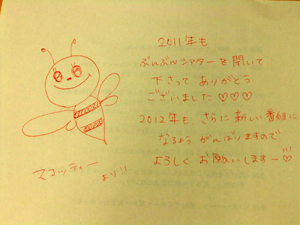 2011年も
ぶんぶんシアターを開いて
下さって ありがとう
ございました♡♡♡
2012年も、さらに新しい番組に
なるよう がんばりますので
よろしく お願いします－♡!!!
マコッティー
より!!